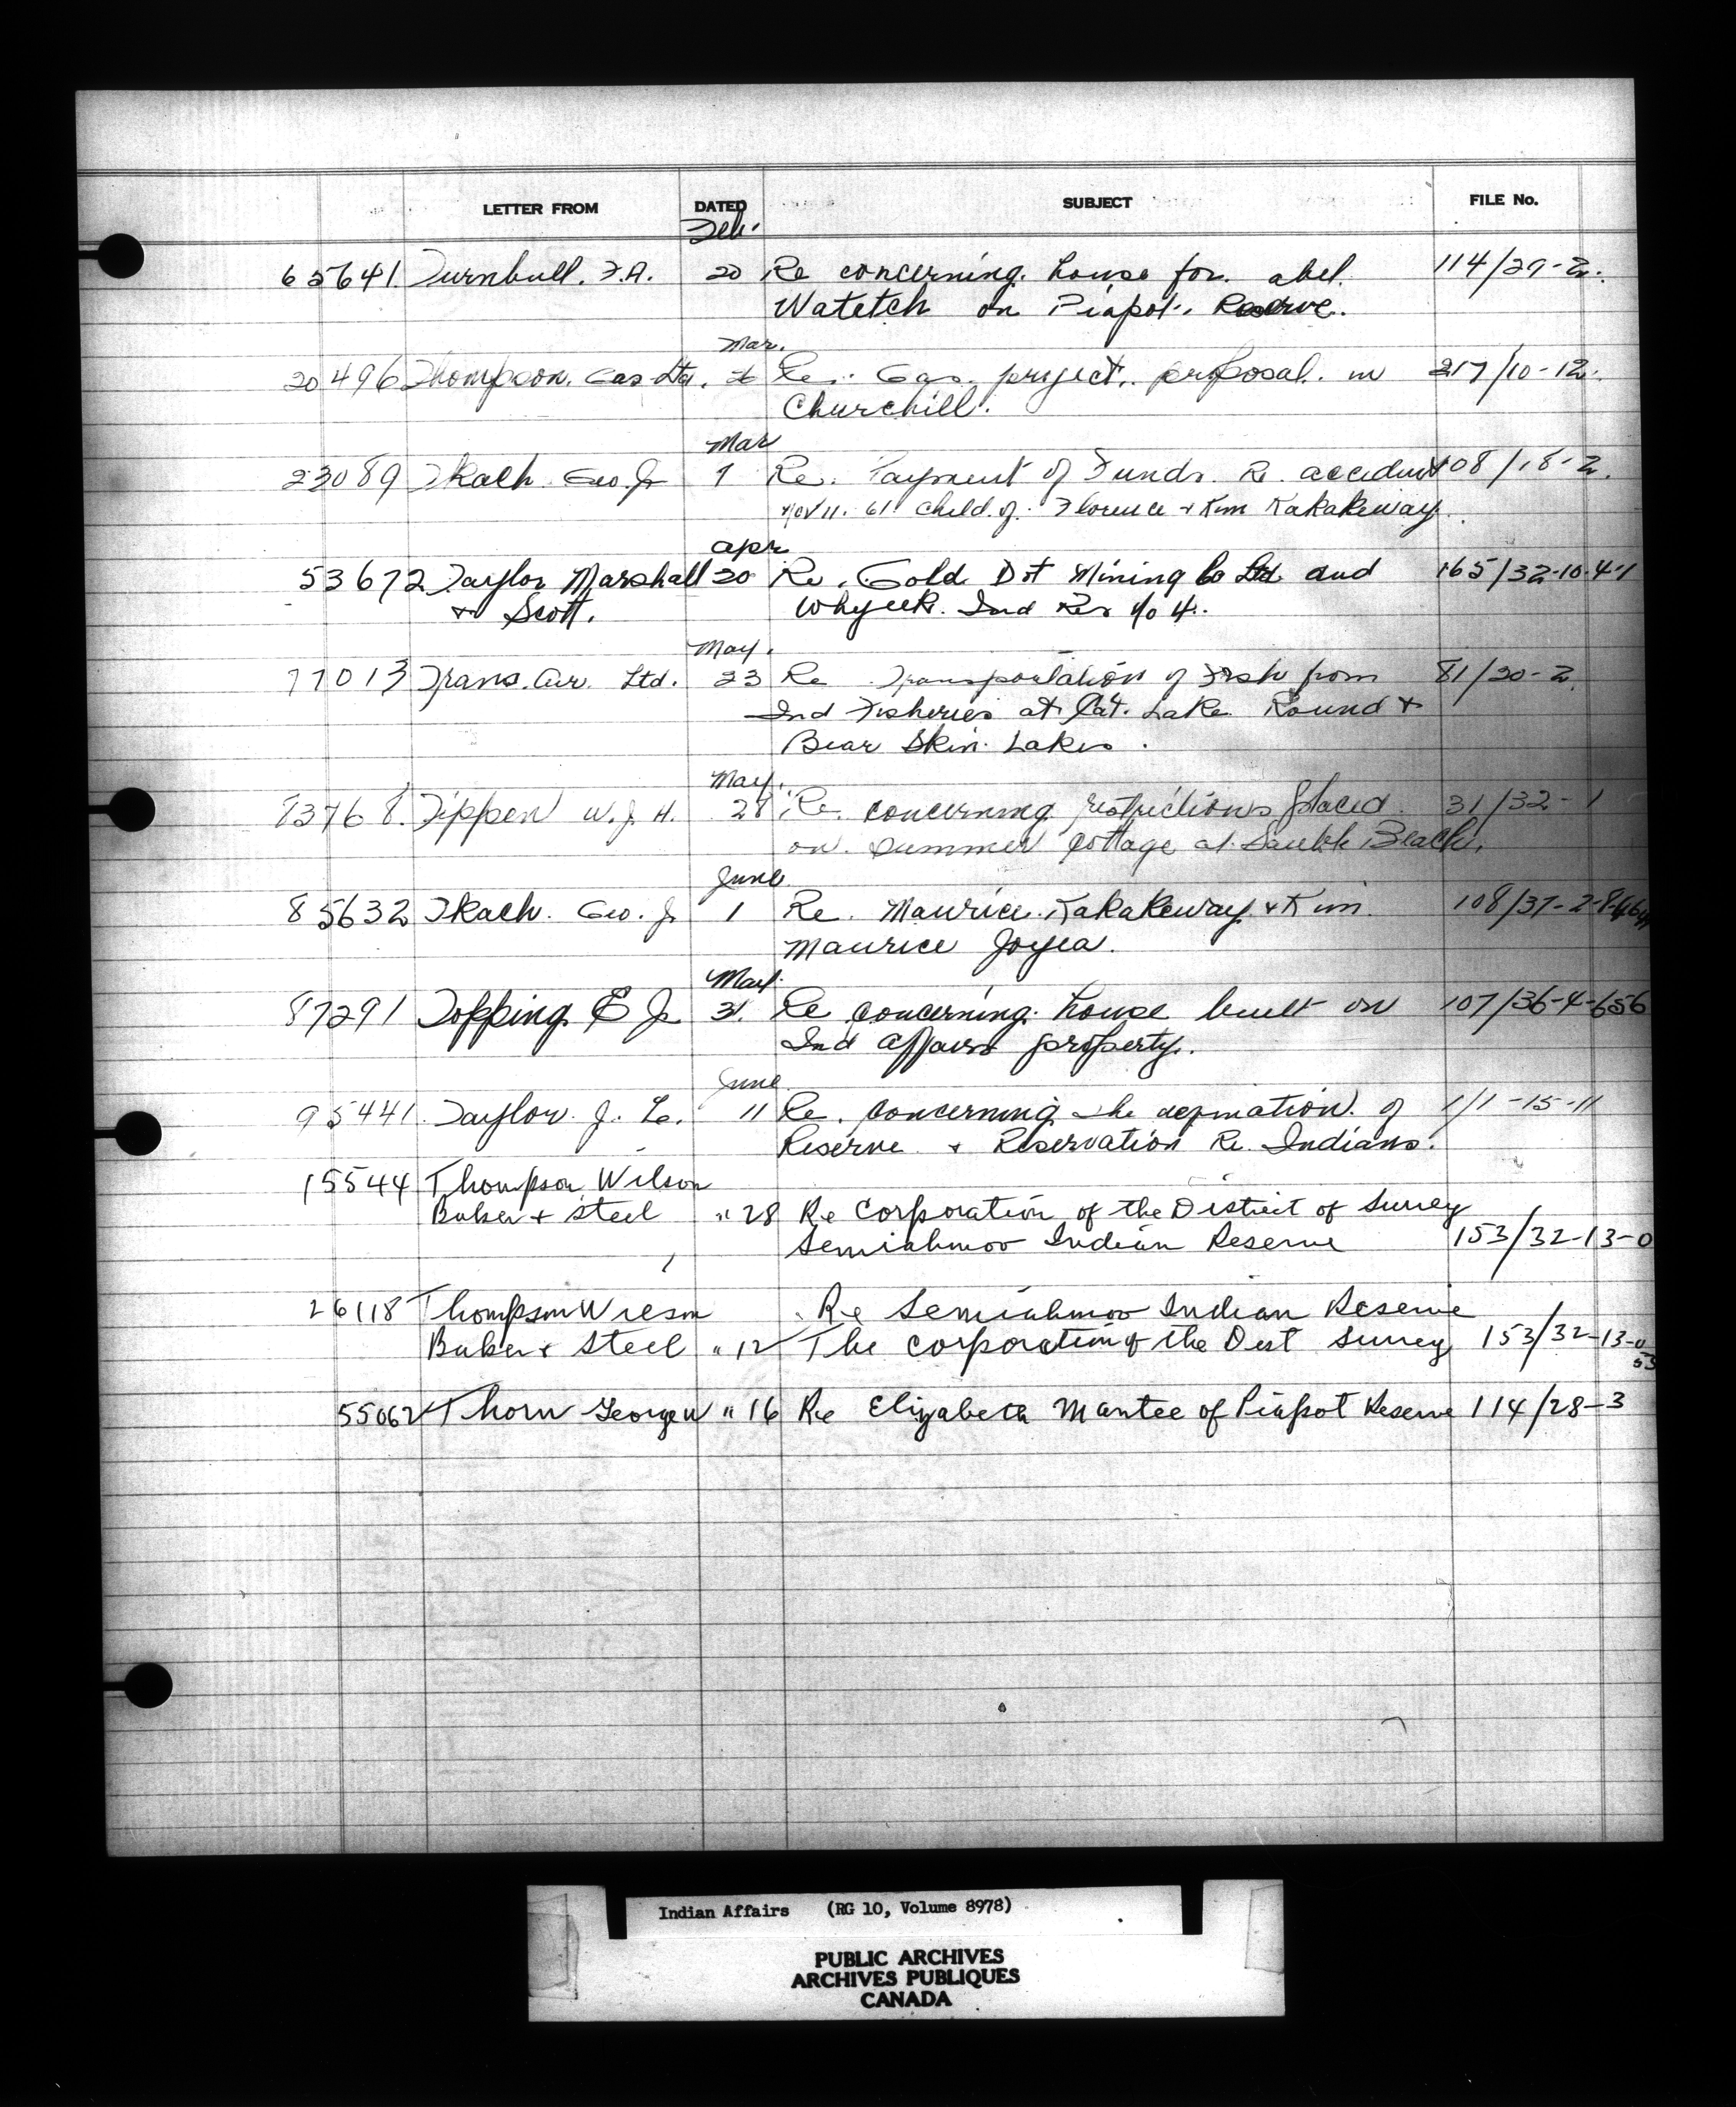 LETTER FROM DATED SUBJECT FILE No.
Feb.
65641. Turnbull. F.A. 20 Re concerning. house for. abel. 114/29-2.
Watetch on Piapot. Reserve.
Mar.
20496 Thompson. Gas Ltd. Re. Gas. project. proposal. in 217/10-12.
Churchill.
Mar
23089 Tkach. Geo. J. 7 Re. Payment of Funds. Re. accident 108/18-2.
Nov 11. 61 child. of. Florence + Kim Kakakeway.
apr
53672 Taylor Marshall 20 Re. Gold Dot Mining Co Ltd and 165/32-10-4-1
& Scott. Whyeek. Ind Rs No 4.
May.
77013 Trans. Air. Ltd. 23 Re Transportation of Fish from 81/20-2.
Ind Fisheries at Cat. Lake Round +
Bear Skin. Lakes.
May.
83768. Tippen W. J. H. 28 Re. concerning restrictions placed 31/32-1
on. summer cottage at. Sauble Beach.
June
85632 Tkach. Geo. J. 1 Re. Maurice. Kakakeway. + Kim 108/37-2-8-
Maurice Joyea.
May.
87291 Topping E J. 31. Re concerning. house built on 107/36-4-656
Ind affairs property.
June
95441. Taylor. J. L. 11 Re. concerning the definition. of 1/1-15-11
Reserve + Reservation Re. Indians.
15544 Thompson Wilson
Baker + Steel " 28 Re Corporation of the District of Surrey
Semiahmoo Indian Reserve 153/32-13-0
26118 Thompson Wilson Re Semiahmoo Indian Reserve
Baker + Steel " 12 The Corporation of the Dist Surrey 153/32-13-0
53
55062 Thorn George W " 16 Re Elizabeth Mantee of Piapot Reserve 114/28-3
Indian Affairs (RG 10, Volume 8978)
PUBLIC ARCHIVES
ARCHIVES PUBLIQUES
CANADA